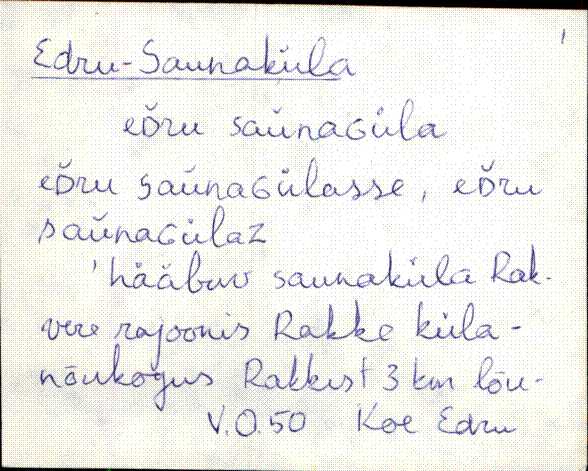 1
Edru-Saunaküla
eD̆ru saŭnaGüla
eD̆ru saŭnaGülasse, eD̆ru
saŭnaGülaz
'hååbuv saunaküla Rak-
vere rajoonis Rakke küla-
nõukogus Rakkest 3 km lõu-
V.O.50 Koe Edru